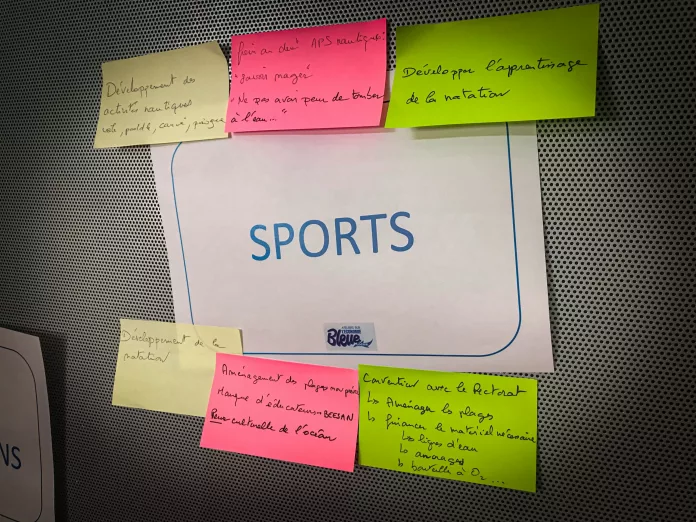 Développement des
activités nautiques
voile, paddle, canoë, pirogue
frein au dévt APS nautiques:
"savoir nager"
"Ne pas avoir peur de tomber
à l'eau..."
Développer l'apprentissage
de la natation
SPORTS
Bleue
Développement de la
natation
Aménagement des plages
Manque d'éducateurs BEESAN
Peur culturelle de l'océan
Convention avec le Rectorat
↳ Aménager les plages
↳ financer le matériel nécessaire
↳ lignes d'eau
↳ ancrages
↳ bouteille à O2 ...
NS